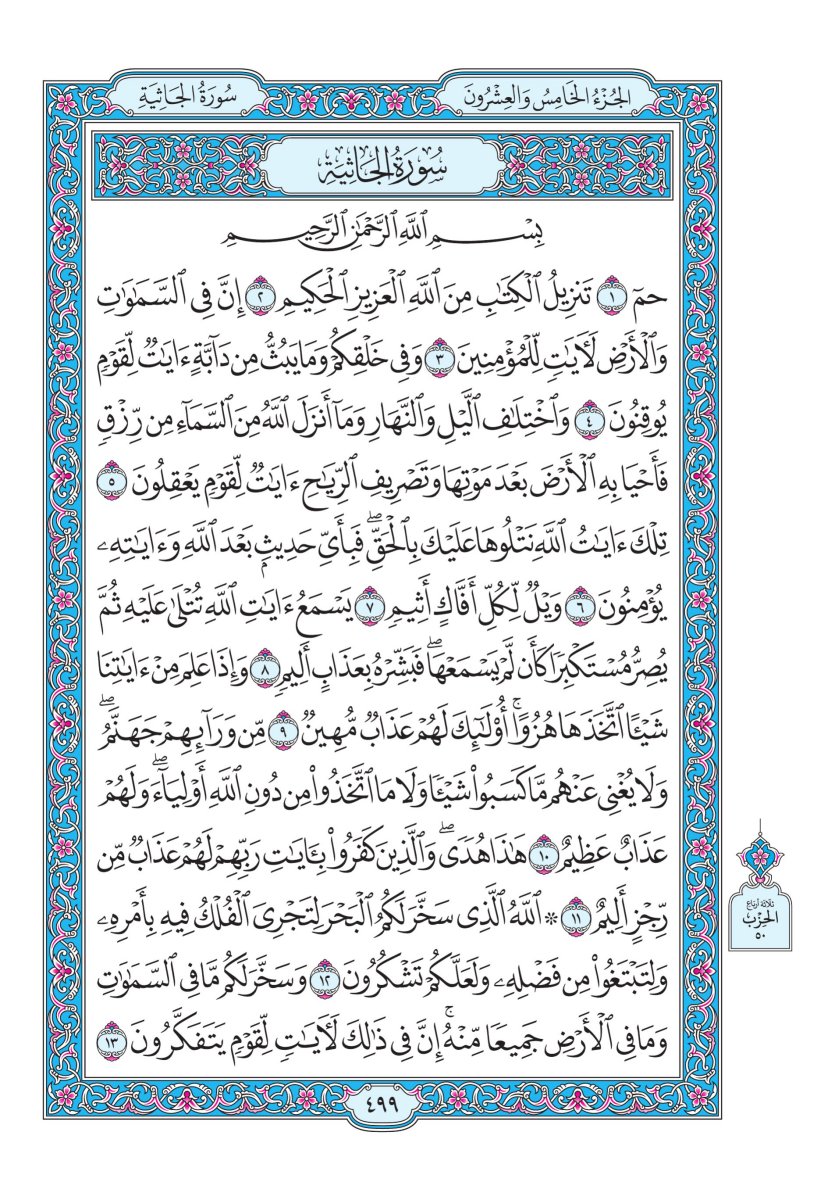 الجُزْءُ الخَامِسُ وَالعِشْرُونَ
سُورَةُ الجَاثِيَةِ
سُورَةُ الجَاثِيَةِ
بِسْمِ ٱللَّهِ ٱلرَّحْمَٰنِ ٱلرَّحِيمِ
حمٓ ١ تَنزِيلُ ٱلْكِتَٰبِ مِنَ ٱللَّهِ ٱلْعَزِيزِ ٱلْحَكِيمِ ٢ إِنَّ فِى ٱلسَّمَٰوَٰتِ
وَٱلْأَرْضِ لَءَايَٰتٍ لِّلْمُؤْمِنِينَ ٣ وَفِى خَلْقِكُمْ وَمَا يَبُثُّ مِن دَآبَّةٍ ءَايَٰتٌ لِّقَوْمٍ
يُوقِنُونَ ٤ وَٱخْتِلَٰفِ ٱلَّيْلِ وَٱلنَّهَارِ وَمَآ أَنزَلَ ٱللَّهُ مِنَ ٱلسَّمَآءِ مِن رِّزْقٍ
فَأَحْيَا بِهِ ٱلْأَرْضَ بَعْدَ مَوْتِهَا وَتَصْرِيفِ ٱلرِّيَٰحِ ءَايَٰتٌ لِّقَوْمٍ يَعْقِلُونَ ٥
تِلْكَ ءَايَٰتُ ٱللَّهِ نَتْلُوهَا عَلَيْكَ بِٱلْحَقِّۖ فَبِأَىِّ حَدِيثٍۭ بَعْدَ ٱللَّهِ وَءَايَٰتِهِۦ
يُؤْمِنُونَ ٦ وَيْلٌ لِّكُلِّ أَفَّاكٍ أَثِيمٍ ٧ يَسْمَعُ ءَايَٰتِ ٱللَّهِ تُتْلَىٰ عَلَيْهِ ثُمَّ
يُصِرُّ مُسْتَكْبِرًا كَأَن لَّمْ يَسْمَعْهَاۖ فَبَشِّرْهُ بِعَذَابٍ أَلِيمٍ ٨ وَإِذَا عَلِمَ مِنْ ءَايَٰتِنَا
شَيْـًٔا ٱتَّخَذَهَا هُزُوًاۚ أُو۟لَٰٓئِكَ لَهُمْ عَذَابٌ مُّهِينٌ ٩ مِّن وَرَآئِهِمْ جَهَنَّمُۖ
وَلَا يُغْنِى عَنْهُم مَّا كَسَبُوا۟ شَيْـًٔا وَلَا مَا ٱتَّخَذُوا۟ مِن دُونِ ٱللَّهِ أَوْلِيَآءَۖ وَلَهُمْ
عَذَابٌ عَظِيمٌ ١٠ هَٰذَا هُدًىۖ وَٱلَّذِينَ كَفَرُوا۟ بِـَٔايَٰتِ رَبِّهِمْ لَهُمْ عَذَابٌ مِّن
رِّجْزٍ أَلِيمٌ ١١ ۞ ٱللَّهُ ٱلَّذِى سَخَّرَ لَكُمُ ٱلْبَحْرَ لِتَجْرِىَ ٱلْفُلْكُ فِيهِ بِأَمْرِهِۦ
وَلِتَبْتَغُوا۟ مِن فَضْلِهِۦ وَلَعَلَّكُمْ تَشْكُرُونَ ١٢ وَسَخَّرَ لَكُم مَّا فِى ٱلسَّمَٰوَٰتِ
وَمَا فِى ٱلْأَرْضِ جَمِيعًا مِّنْهُۚ إِنَّ فِى ذَٰلِكَ لَءَايَٰتٍ لِّقَوْمٍ يَتَفَكَّرُونَ ١٣
ثلاثة أرباع
الحِزْب
٥٠
٤٩٩